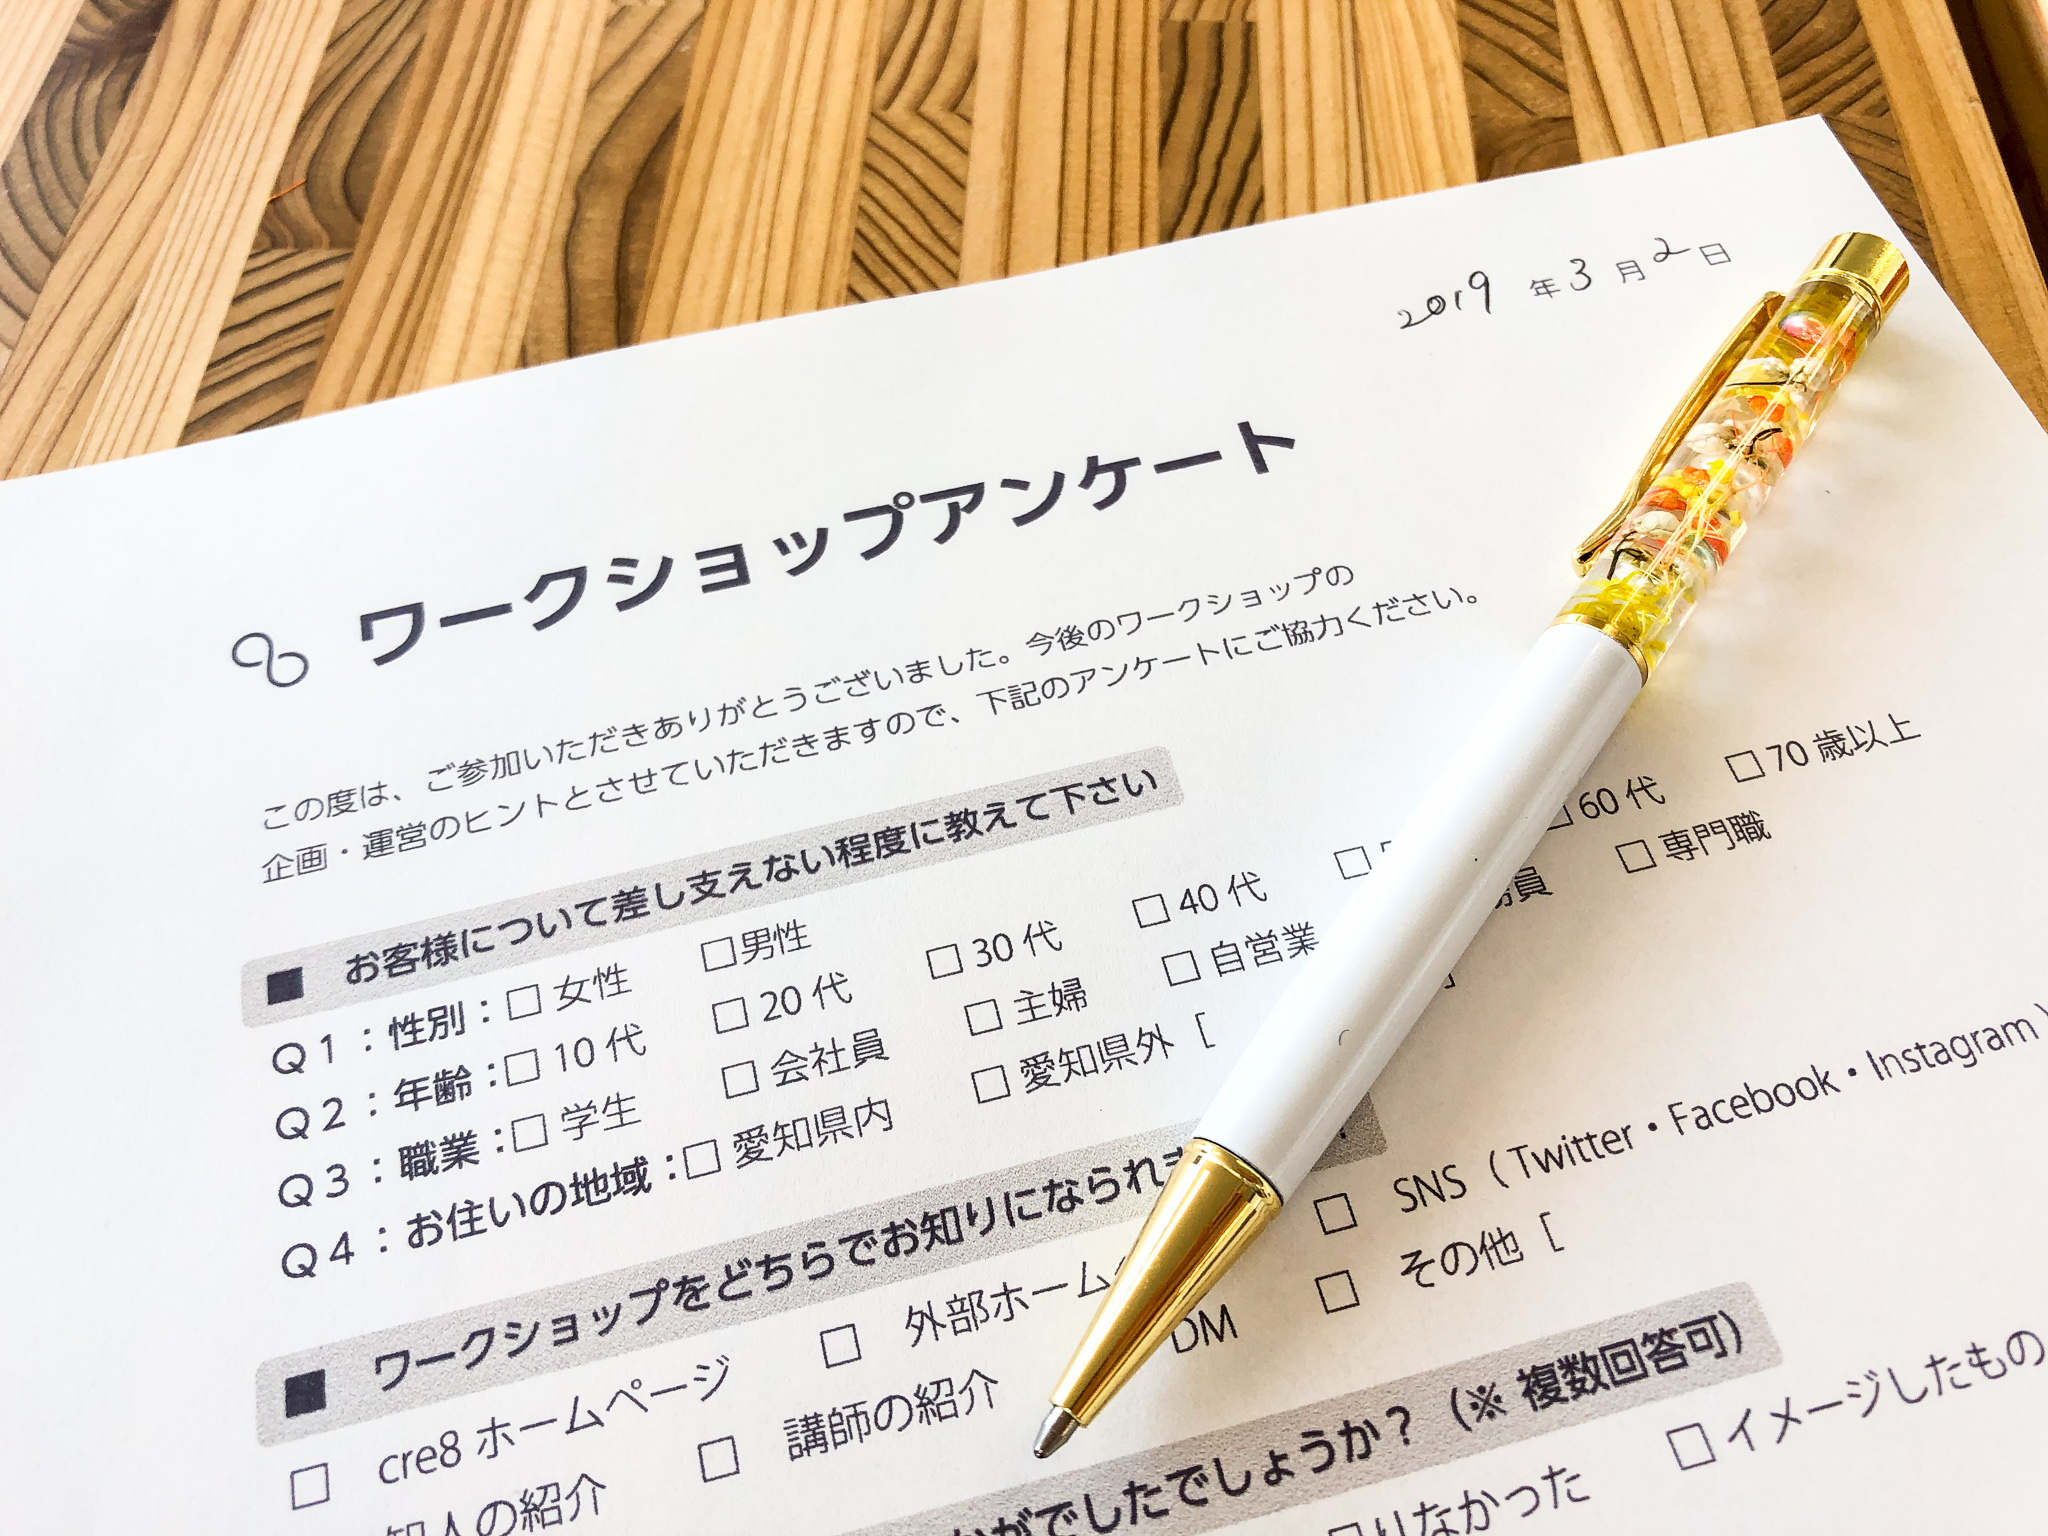 2019 年 3 月 2 日
ワークショップアンケート
この度は、ご参加いただきありがとうございました。今後のワークショップの
企画・運営のヒントとさせていただきますので、下記のアンケートにご協力ください。
■ お客様について差し支えない程度に教えて下さい
Q1：性別：□ 女性 □男性
Q2：年齢：□ 10 代 □ 20 代 □ 30 代 □ 40 代 □ □ 60 代 □ 70 歳以上
Q3：職業：□ 学生 □ 会社員 □ 主婦 □ 自営業 員 □ 専門職
Q4：お住いの地域：□ 愛知県内 □ 愛知県外［
■ ワークショップをどちらでお知りになられ
□ cre8 ホームページ □ 外部ホーム □ SNS（Twitter・Facebook・Instagram）
知人の紹介 □ 講師の紹介 DM □ その他［
がでしたでしょうか？（※ 複数回答可）
りなかった □イメージしたもの